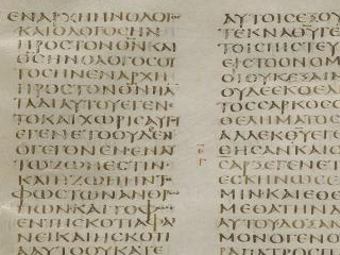 ΕΝΑΡΧΗΗΝΟΛΟΓ
ΚΑΙΟΛΟΓΟCΗΝ
ΠΡΟCΤΟΝΘΝΚΑΙ
ΘCΗΝΟΛΟΓΟCΟΥ
ΤΟCΗΝΕΝΑΡΧΗ
ΠΡΟCΤΟΝΘΝΠΑ
ΤΑΔΙΑΥΤΟΥΕΓΕΝ
ΤΟΚΑΙΧΩΡΙCΑΥΤΥ
ΕΓΕΝΕΤΟΟΥΔΕΝ
ΟΓΕΓΟΝΕΝΕΝΑΥ
ΤΩΖΩΗΕCΤΙΝ
ΚΑΙΗΖΩΗΗΝΤ
ΦΩCΤΩΝΑΝΘΡ
ΠΩΝΚΑΙΤΟΦ
ΕΝΤΗCΚΟΤΙΑΦΑ
ΝΕΙΚΑΙΗCΚΟΤΙ
ΑΑΥΤΟΟΥΚΑΤΕ
ΑΥΤΟΙCΕΞΟΥ
ΤΕΚΝΑΘΥΓΕ
ΤΟΙCΠΙCΤΕΥ
ΕΙCΤΟΟΝΟΜ
ΟΙΟΥΚΕΞΑΙΜ
ΟΥΔΕΕΚΘΕΛ
ΤΟCCΑΡΚΟC
ΘΕΛΗΜΑΤΟC
ΑΛΛΕΚΘΥΕΓΕ
ΘΗCΑΝΚΑΙΟ
CΑΡΞΕΓΕΝΕΤ
ΕCΚΗΝΩCΕ
ΜΙΝΚΑΙΕΘΕ
ΜΕΘΑΤΗΝΔ
ΑΥΤΟΥΔΟΞΑΝ
ΜΟΝΟΓΕΝΟ
ΡΑΠΑΤΡΟC